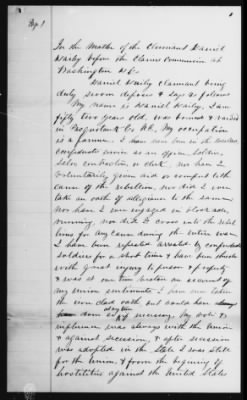 Pg. 1
In the Matter of the Claimant Daniel
before the Claims Commission at
Washington D.C.
Daniel claimant being
duly sworn deposes & says as follows
My name is Daniel I am
fifty two years old. was born & raised
in Pasquotank Co N.C. My occupation
is a farmer. I have never been in the
confederate service as an officer, Soldier,
Sailor contractor or clerk, nor have I
voluntarily given aid or comfort to the
cause of the rebellion, nor did I ever
take an oath of allegiance to the same
nor have I ever engaged in blockade
running, nor did I cross into the rebel
lines for any cause during the entire war
I have been repeated arrested by confederate
soldiers for a short time & have been threatened
with great injury to person & property
& was at one time on account of
my union sentiments I have never taken
the iron clad oath but could have
done so at any time if necessary. My vote &
influence was always with the Union
& against secession, & after secession
was adopted in the State I was still
for the Union. & from the begining of
hostilities against the United States